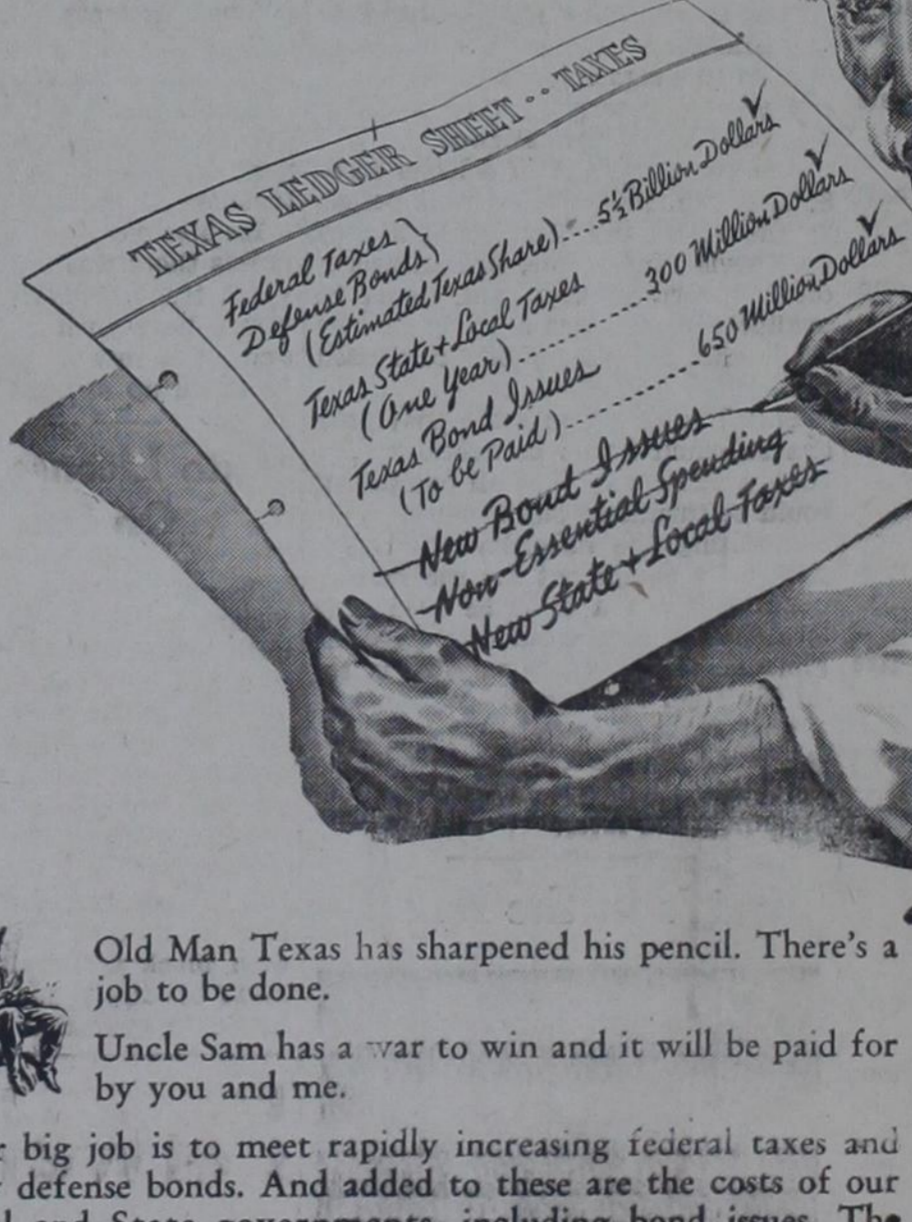 TEXAS LEDGER SHEET -- TAXES
Federal Taxes }
Defense Bonds }
(Estimated Texas Share)....5½ Billion Dollars ✓
Texas State & Local Taxes
(One Year)............300 Million Dollars ✓
Texas Bond Issues
(To be Paid)............650 Million Dollars ✓
New Bond Issues
Non-Essential Spending
New State & Local Taxes
Old Man Texas has sharpened his pencil. There's a
job to be done.
Uncle Sam has a war to win and it will be paid for
by you and me.
big job is to meet rapidly increasing federal taxes and
defense bonds. And added to these are the costs of our
and State governments, including bond issues. The